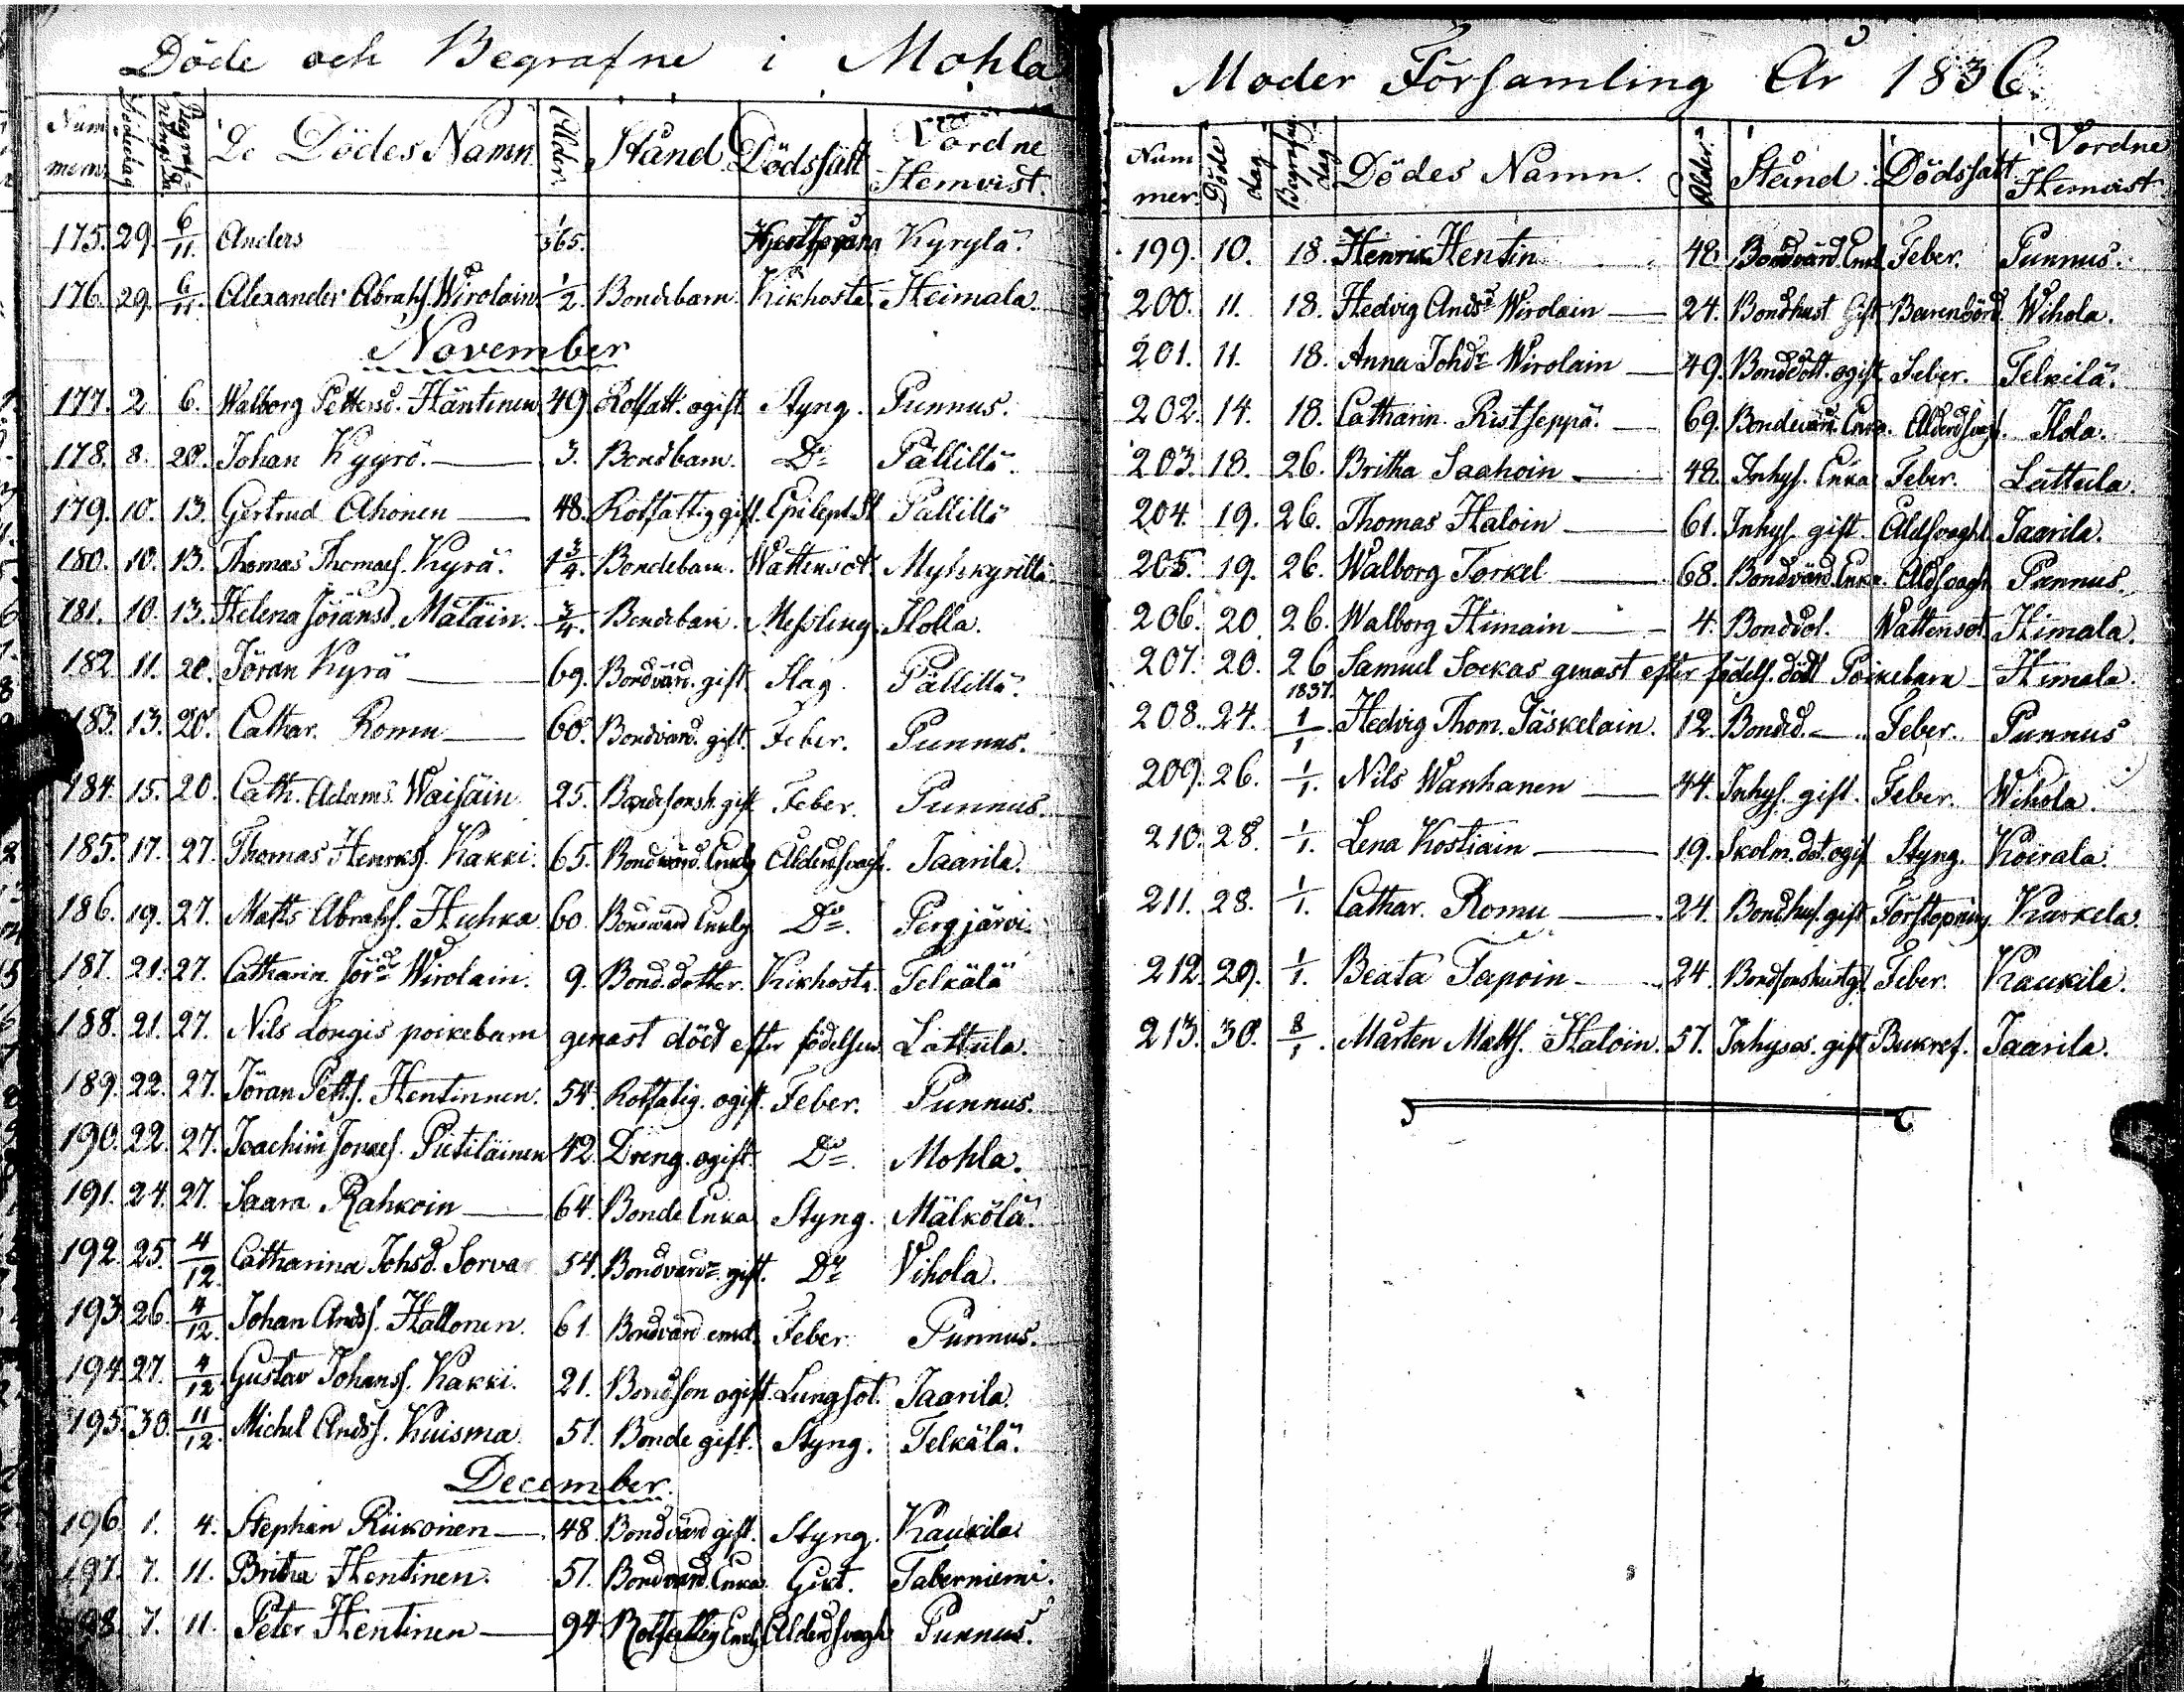 Döde och Begrafne i Mohla
Nummern Dödedag Begrafnings Dag De Dödes Namn Ålder. Stånd. Dödssätt Vordne Hemvist.
175. 29. 6/11. Anders 65. Kyrylä.
176. 29. 6/11. Alexander Abrahs. Wirolain. 1/2. Bondebarn. Kikhosta. Heimala.
November
177. 2 6. Walborg Pettersd. Häntinen 49 Rotfatt. ogift Styng. Punnus.
178. 8. 20. Johan Kyyrö. 3. Bondbarn. Do Pällillä.
179. 10. 13. Gertrud Ahonen 48. Rotfattig gift. Epilept. Sl Pällillä
180. 10. 13. Thomas Thomass. Kyrä. 1 3/4. Bondebarn. Wattensot. Myhkyrillä.
181. 10. 13. Helena Jöransd. Mätäin. 3/4. Bondebarn. Messling. Holla.
182 11. 20. Jöran Kyrä 69. Bondvärd. gift. Slag. Pällillä.
183. 13. 20. Cathar. Romu 60. Bondvärd. gift. Feber. Punnus.
184. 15. 20. Cath. Adams. Waisäin. 25. Bondesonsh. gift Feber. Punnus.
185. 17. 27. Thomas Henrks. Kakki. 65. Bondvärd. Enkly Ålderdsvagh. Jaarila.
186. 19. 27. Matts Abrahs. Huhka 60. Bondvärd Enkly Do. Pergjärvi.
187. 21. 27. Catharin. Jörd. Wirolain. 9. Bond.dotter. Kikhosta. Telkälä
188. 21. 27. Nils Longis poikebarn genast död efter födelsen Lättula.
189. 22. 27. Jöran Petts. Hentinnen. 54. Rotfatig. ogift. Feber. Punnus.
190. 22. 27. Joachim Jonass. Pietiläinen 42. Dreng. ogift. Do. Mohla.
191. 24. 27. Saara Rahkoin 64. Bonde Enka Styng. Mälkölä.
192. 25. 4/12. Catharina Johsd. Sorva 54. Bondvärd. gift. Do Vihola.
193. 26. 4/12. Johan Ands. Hallonen. 61. Bondvärd enkl Feber. Punnus.
194. 27. 4/12 Gustav Johanss. Kakki. 21. Bondson ogift. Lungsot. Jaarila.
195. 30. 11/12. Michel Ands. Kuisma. 51. Bonde gift. Styng. Telkälä.
December.
196. 1. 4. Stephan Riikonen 48. Bondvärd gift. Styng. Kaukila.
197. 7. 11. Britha Hentinen. 57. Bondvärd. Enka. Gikt. Taberniemi.
198. 7. 11. Peter Hentinen 94 Rotfattig Enkl Ålderdsvagh Punnus.
Moder Församling År 1836.
Nummer. Döde dag Begrafng dag Dödes Namn. Ålder. Stånd. Dödssätt Vordne Hemvist
199. 10. 18. Henrik Hentin 48. Bondvärd. Enkl Feber. Punnus.
200. 11. 18. Hedvig Andsd. Wirolain 24. Bondhust Gift Barnsbörd. Wihola.
201. 11. 18. Anna Johdr. Wirolain 49. Bonddott. ogift Feber. Telkilä.
202. 14. 18. Catharin. Ristseppä. 69. Bondevärd. Enka. Ålderdsvagh. Ilola.
203. 18. 26. Britha Saahoin 48. Inhys. Enka Feber. Lättula.
204. 19. 26. Thomas Haloin 61. Inhys. gift. Åldsvaghl. Jaarila.
205. 19. 26. Walborg Torkel 68. Bondvärd. Enka. Åldsvagh Punnus.
206. 20. 26. Walborg Himain 4. Bonddot. Wattensot. Himala.
207. 20. 26 Samuel Sockas genast efter födels. död Poikebarn Himala.
208. 24. 1837. 1/1 Hedvig Thom. Jäskelain. 12. Bondd. Feber. Punnus
209. 26. 1/1. Nils Wanhanen 44. Inhys. gift. Feber. Wihola.
210. 28. 1/1. Lena Kostiain 19. Skolm. dot. ogif Styng. Koirala.
211. 28. 1/1. Cathar. Romu 24. Bondhus. gift Förstopning Kurkela.
212. 29. 1/1. Beata Tapoin 24. Bondsonshust g. Feber. Kaukila.
213. 30. 8/1. Mårten Matts. Haloin. 57. Inhyses. gift Bukref. Jaarila.